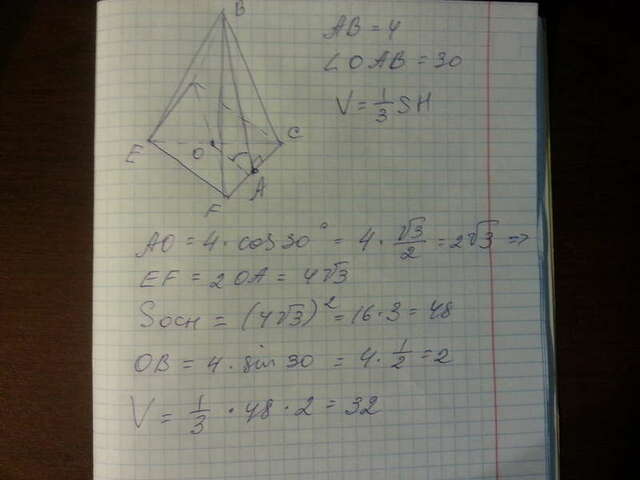 B
AB = 4
∠OAB = 30
V = 1/3 SH
O
A
F
AO = 4 · cos 30° = 4 · √3/2 = 2√3 =>
EF = 2OA = 4√3
Sосн = (4√3)² = 16·3 = 48
OB = 4 · sin 30 = 4 · 1/2 = 2
V = 1/3 · 48 · 2 = 32